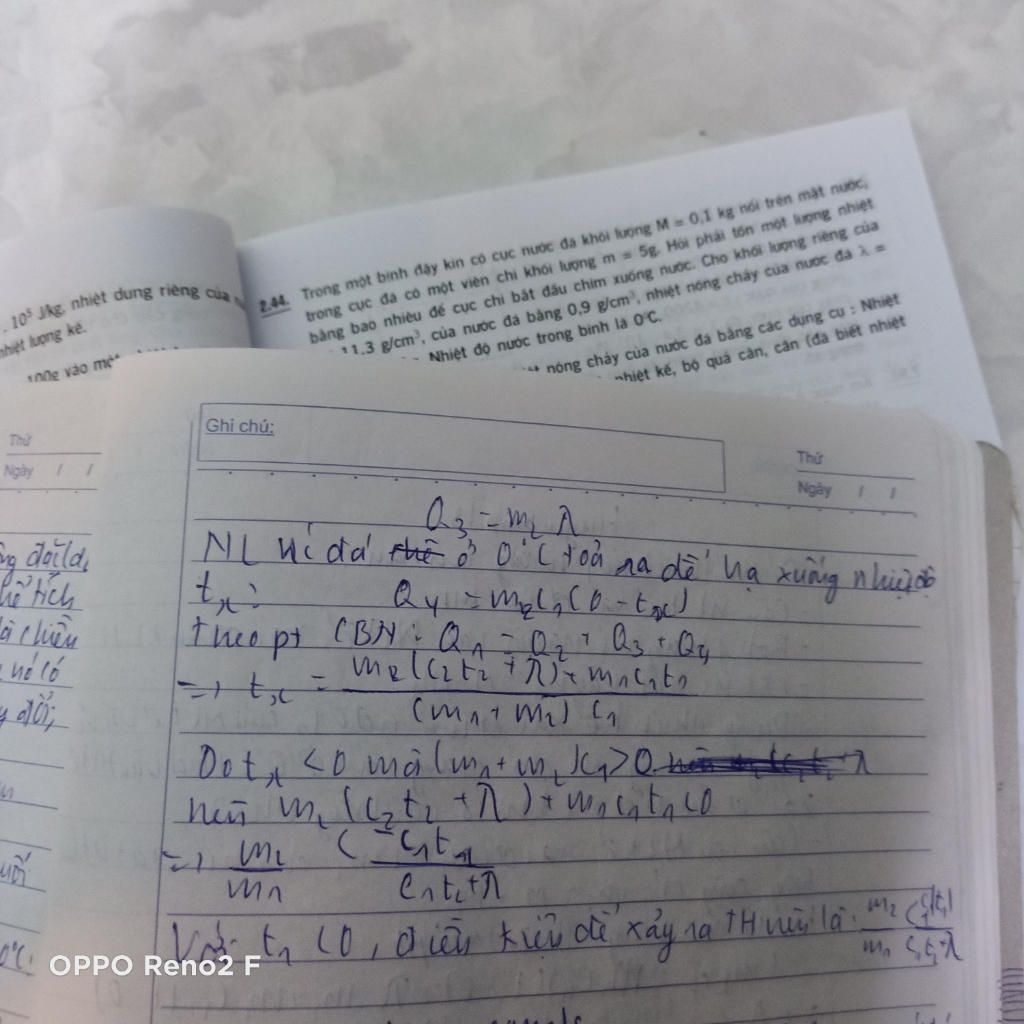 . 10⁵ J/kg, nhiệt dung riêng của
nhiệt lượng kế.
100g vào một
2.44. Trong một bình đậy kín có cục nước đá khối lượng M = 0,1 kg nổi trên mặt nước,
trong cục đá có một viên chì khối lượng m = 5g. Hỏi phải tốn một lượng nhiệt
bằng bao nhiêu để cục chì bắt đầu chìm xuống nước. Cho khối lượng riêng của
11,3 g/cm³, của nước đá bằng 0,9 g/cm³, nhiệt nóng chảy của nước đá λ =
Nhiệt độ nước trong bình là 0°C.
nóng chảy của nước đá bằng các dụng cụ : Nhiệt
nhiệt kế, bộ quả cân, cân (đã biết nhiệt
Thứ
Ngày / /
Ghi chú:
Thứ
Ngày / /
Q₃ = m₂ λ
NL nc đá ở 0°C toả ra để hạ xuống nhiệt độ
tₓ: Q₄ = m₂c₁(0 - tₓ)
Theo pt CBN: Q₁ = Q₂ + Q₃ + Q₄
=> tₓ = (m₂(c₂t₂ + λ) + m₁c₁t₁) / ((m₁ + m₂) c₁)
Do tₓ < 0 mà (m₁ + m₂)c₁ > 0
nên m₂(c₂t₂ + λ) + m₁c₁t₁ < 0
=> m₂/m₁ < -c₁t₁/(c₁t₂ + λ)
Với t₁ < 0, điều kiện để xảy ra TH nêu là:
thể tích
nó có
đổi,
0°C.
OPPO Reno2 F